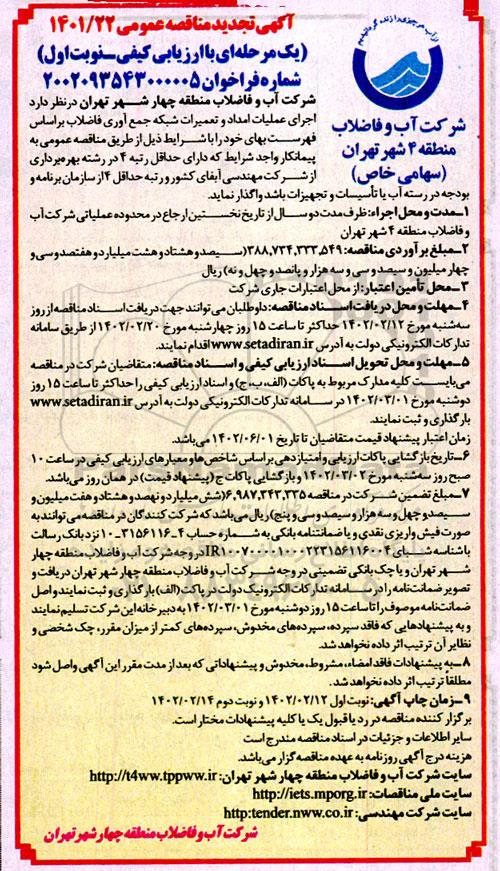 آگهی تجدید مناقصه عمومی ۱۴۰۱/۲۲
(یک مرحله‌ای با ارزیابی کیفی ـ نوبت اول)
شماره فراخوان ۲۰۰۲۰۹۳۵۴۳۰۰۰۰۰۵
شرکت آب و فاضلاب
منطقه ۴ شهر تهران
(سهامی خاص)
شرکت آب و فاضلاب منطقه چهار شهر تهران در نظر دارد
اجرای عملیات امداد و تعمیرات شبکه جمع آوری فاضلاب براساس
فهرست بهای خود را با شرایط ذیل از طریق مناقصه عمومی به
پیمانکار واجد شرایط که دارای حداقل رتبه ۴ در رشته بهره‌برداری
از شرکت مهندسی آبفای کشور و رتبه حداقل ۴ از سازمان برنامه و
بودجه در رسته آب یا تأسیسات و تجهیزات باشد واگذار نماید.
۱ـ مدت و محل اجراء: ظرف مدت دو سال از تاریخ نخستین ارجاع در محدوده عملیاتی شرکت آب
و فاضلاب منطقه ۴ شهر تهران
۲ـ مبلغ برآوردی مناقصه: ۳۸۸,۷۳۴,۳۳۳,۵۴۹ (سیصد و هشتاد و هشت میلیارد و هفتصد و سی و
چهار میلیون و سیصد و سی و سه هزار و پانصد و چهل و نه) ریال
۳ـ محل تأمین اعتبار: از محل اعتبارات جاری شرکت
۴ـ مهلت و محل دریافت اسناد مناقصه: داوطلبان می‌توانند جهت دریافت اسناد مناقصه از روز
سه‌شنبه مورخ ۱۴۰۲/۰۲/۱۲ حداکثر تا ساعت ۱۵ روز چهارشنبه مورخ ۱۴۰۲/۰۲/۲۰ از طریق سامانه
تدارکات الکترونیکی دولت به آدرس www.setadiran.ir اقدام نمایند.
۵ـ مهلت و محل تحویل اسناد ارزیابی کیفی و اسناد مناقصه: متقاضیان شرکت در مناقصه
می‌بایست کلیه مدارک مربوط به پاکات (الف، ب، ج) و اسناد ارزیابی کیفی را حداکثر تا ساعت ۱۵ روز
دوشنبه مورخ ۱۴۰۲/۰۳/۰۱ در سامانه تدارکات الکترونیکی دولت به آدرس www.setadiran.ir
بارگذاری و ثبت نمایند.
زمان اعتبار پیشنهاد قیمت متقاضیان تا تاریخ ۱۴۰۲/۰۶/۰۱ می‌باشد.
۶ـ تاریخ بازگشایی پاکات ارزیابی و امتیازدهی براساس شاخص‌ها و معیارهای ارزیابی کیفی در ساعت ۱۰
صبح روز سه‌شنبه مورخ ۱۴۰۲/۰۳/۰۲ و بازگشایی پاکات ج (پیشنهاد قیمت) در همان روز می‌باشد.
۷ـ مبلغ تضمین شرکت در مناقصه ۶,۹۸۷,۳۴۳,۳۳۵ (شش میلیارد و نهصد و هشتاد و هفت میلیون و
سیصد و چهل و سه هزار و سیصد و سی و پنج) ریال می‌باشد که شرکت کنندگان در مناقصه می‌توانند به
صورت فیش واریزی نقدی و یا ضمانتنامه بانکی به شماره حساب ۴ـ۳۱۵۶۱۱۶ـ۱۰ نزد بانک رسالت
با شناسه شبای IR۱۰۰۷۰۰۰۰۱۰۰۰۲۲۳۱۵۶۱۱۶۰۰۴ در وجه شرکت آب و فاضلاب منطقه چهار
شهر تهران و یا چک بانکی تضمینی در وجه شرکت آب و فاضلاب منطقه چهار شهر تهران دریافت و
تصویر ضمانت‌نامه را در سامانه تدارکات الکترونیک دولت در پاکت (الف) بارگذاری و ثبت نمایند و اصل
ضمانت‌نامه موصوف را تا ساعت ۱۵ روز دوشنبه مورخ ۱۴۰۲/۰۳/۰۱ به دبیرخانه این شرکت تسلیم نمایند
و به پیشنهادهایی که فاقد سپرده، سپرده‌های مخدوش، سپرده‌های کمتر از میزان مقرر، چک شخصی و
نظایر آن ترتیب اثر داده نخواهد شد.
۸ـ به پیشنهادات فاقد امضاء، مشروط، مخدوش و پیشنهاداتی که بعد از مدت مقرر این آگهی واصل شود
مطلقا ترتیب اثر داده نخواهد شد.
۹ـ زمان چاپ آگهی: نوبت اول ۱۴۰۲/۰۲/۱۲ و نوبت دوم ۱۴۰۲/۰۲/۱۴
برگزار کننده مناقصه در رد یا قبول یک یا کلیه پیشنهادات مختار است.
سایر اطلاعات و جزئیات در اسناد مناقصه مندرج است
هزینه درج آگهی روزنامه به عهده مناقصه گزار می‌باشد.
سایت شرکت آب و فاضلاب منطقه چهار شهر تهران: http://t4ww.tppww.ir
سایت ملی مناقصات: http://iets.mporg.ir
سایت شرکت مهندسی: http:tender.nww.co.ir
شرکت آب و فاضلاب منطقه چهار شهر تهران